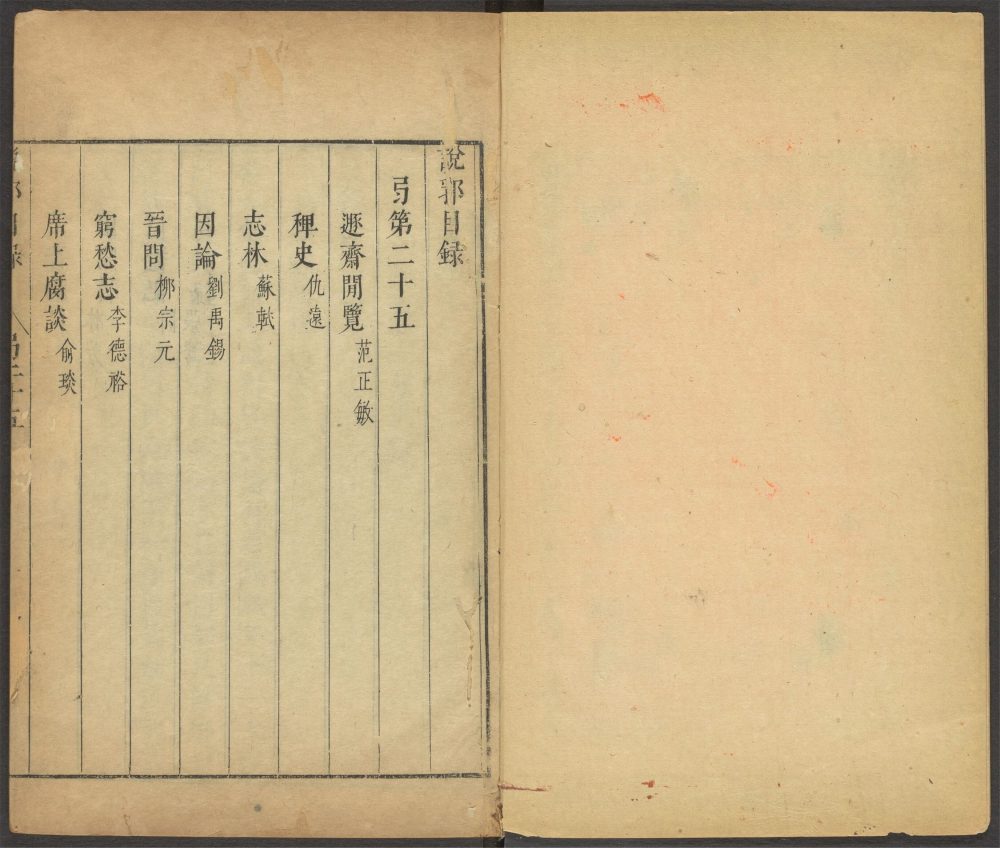 說郛目録
弓第二十五
遯齋閒覽 范正敏
稗史 仇遠
志林 蘇軾
因論 劉禹錫
晉問 柳宗元
窮愁志 李德裕
席上腐談 俞琰